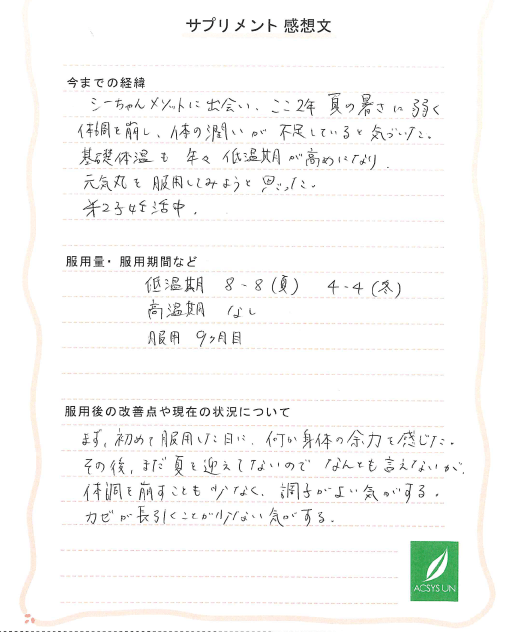 サプリメント 感想文
今までの経緯
シーちゃんメソットに出会い、ここ2年 夏の暑さに弱く
体調を崩し、体の潤いが 不足していると気づいた。
基礎体温も 年々 低温期が高めになり、
元気丸を服用してみようと思った。
第2子妊活中。
服用量・服用期間など
低温期 8-8(夏) 4-4(冬)
高温期 なし
服用 9ヶ月目
服用後の改善点や現在の状況について
まず、初めて服用した日に、何か身体の余力を感じた。
その後、まだ夏を迎えてないので なんとも言えないが、
体調を崩すことも少なく、調子がよい気がする。
カゼが長引くことが少ない気がする。
ACSYS UN